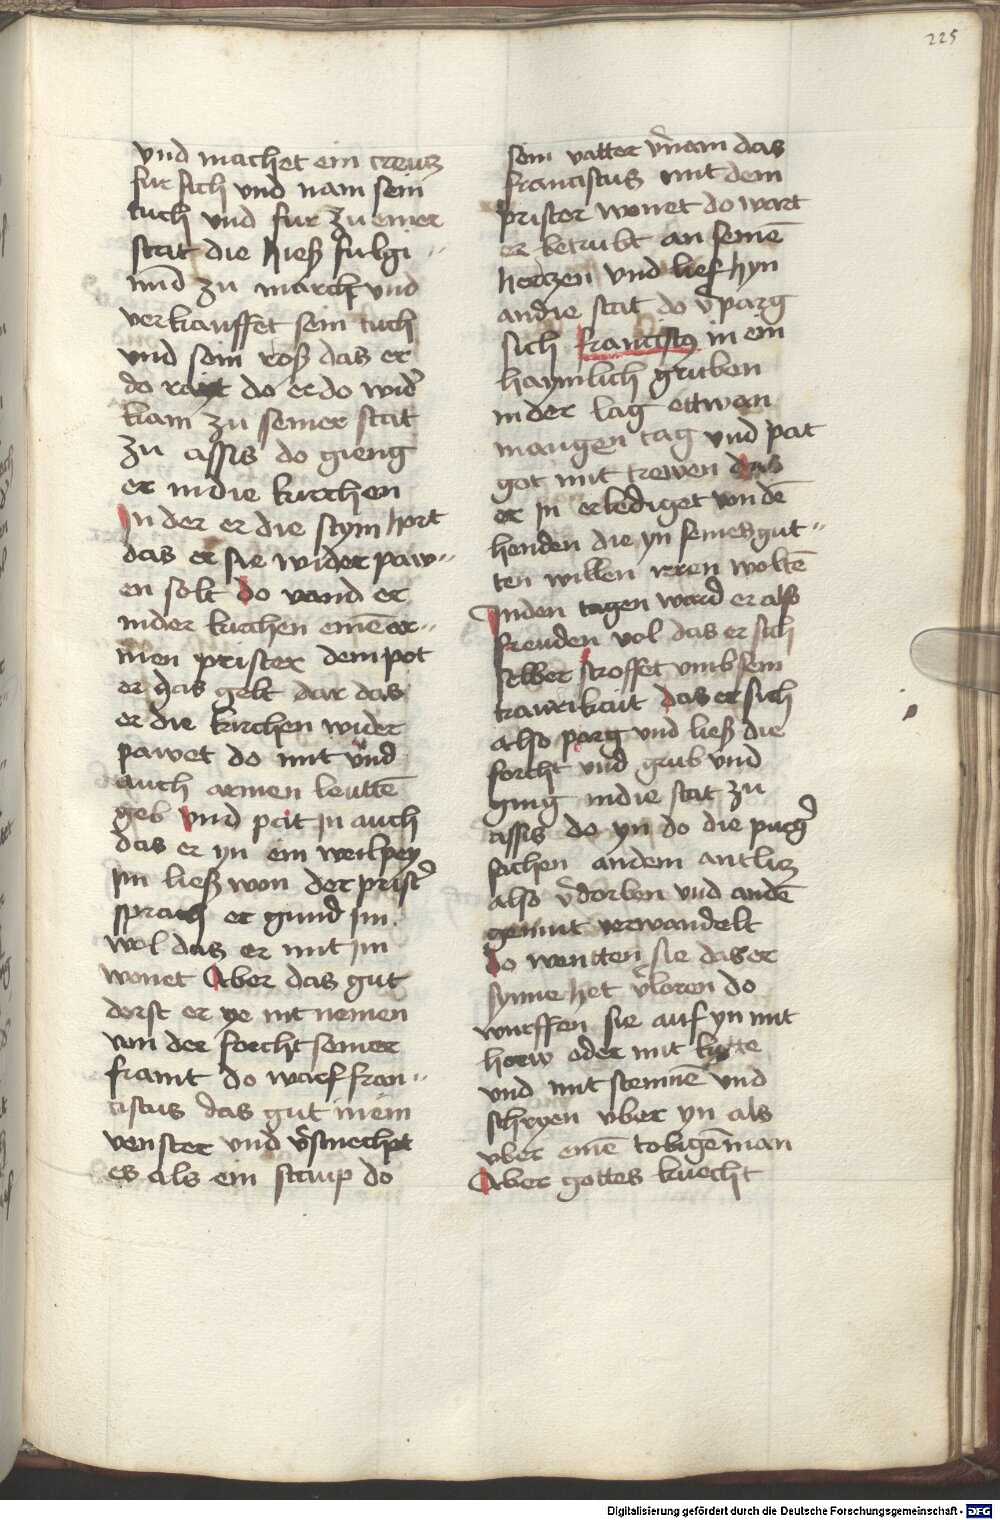 225
vnd machet ein creutz
fur sich vnd nam sein
tuch vnd fur zu einer
stat die hieß fulgi
nnd zu marck vnd
verkauffet sein tuch
vnd sein roß das er
do rayt do er do wid̉
kam zu seiner stat
zu assis do gieng
er in die kirchen
In der er die stym hort
das er sie wider paw⸗
en solt do vand er
in der kirchen einē ar⸗
men prister dem pot
er das gelt dar das
er die kirchen wider
pawet do mit vnd
auch armen leuttē
geb vnd pat jn auch
das er yn ein weil pey
im ließ won der prist̉
sprach er gund jm
wol das er mit jm
wonet Aber das gut
dorst er ye nit nemen
von der forcht seiner
framt do warf fran⸗
ciscus das gut in ein
venster vnd v̉smecht
es als ein staup do
sein vatter v̉nam das
franciscus mit dem
prister wonet do wart
er betrubt an seinē
hertzen vnd lief hyn
an die stat do v̉parg
sich franciscꝯ in ein
haymlich gruben
in der lag ettwan
mangen tag vnd pat
got mit trewen das
er jn erlediget von dē
henden die yn seines gut⸗
ten willen irren woltē
In den tagen ward er also
freuden vol das er sich
selber stroffet vmb sein
trawrikait das er sich
also parg vnd ließ die
forcht vnd grub vnd
ging in die stat zu
assis do yn do die purg̉
sachen an dem antlitz
also v̉dorben vnd an dē
gemut verwandelt
do wentten sie das er
synne het v̉loren do
wurffen sie auf yn mit
horw oder mit kotte
vnd mit steinnē vnd
schryen vber yn als
vber einē tobigē man
Aber gottes knecht
Digitalisierung gefördert durch die Deutsche Forschungsgemeinschaft - DFG